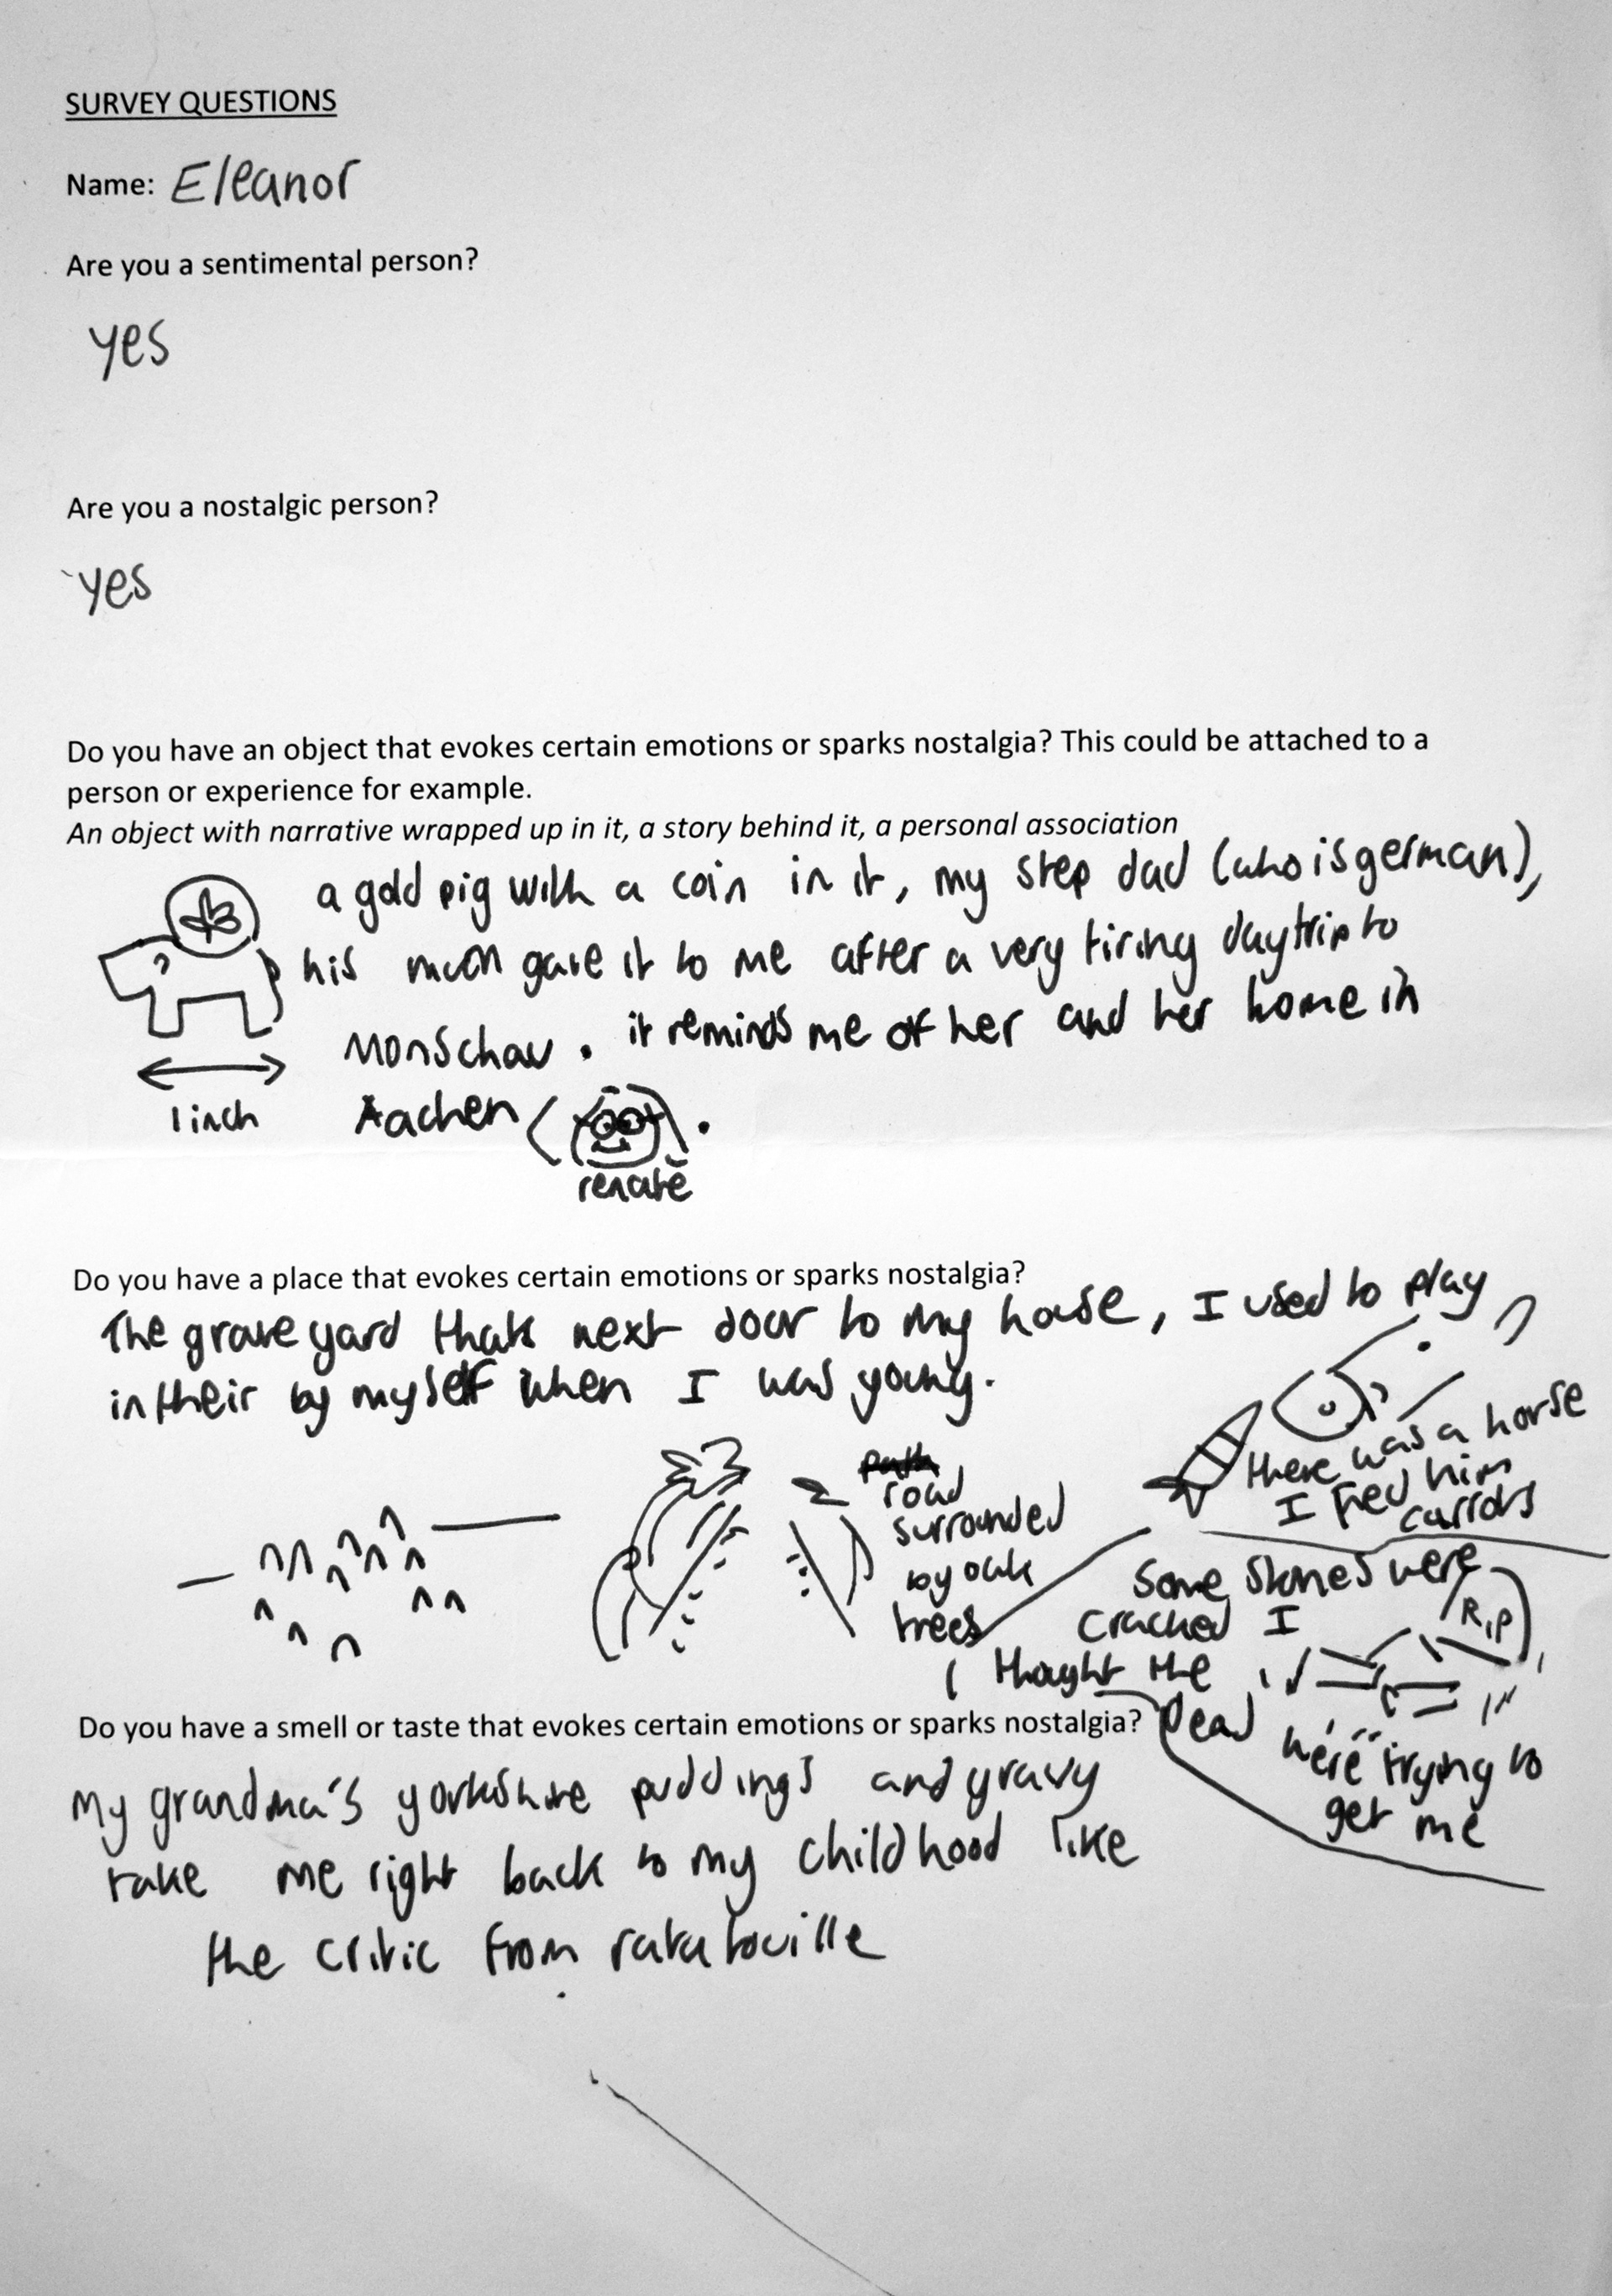 SURVEY QUESTIONS
Name: Eleanor
Are you a sentimental person?
yes
Are you a nostalgic person?
yes
Do you have an object that evokes certain emotions or sparks nostalgia? This could be attached to a
person or experience for example.
An object with narrative wrapped up in it, a story behind it, a personal association
a gold pig with a coin in it, my step dad (who is german),
his mum gave it to me after a very tiring daytrip to
Monschau. it reminds me of her and her home in
1 inch
Aachen ( ).
renate
Do you have a place that evokes certain emotions or sparks nostalgia?
The grave yard thats next door to my house, I used to play
in their by myself when I was young.
there was a horse
I fed him
carrots
path
road
surrounded
by oak
trees
Some stones were
cracked I
thought the
Dead were trying to
get me
R.I.P
Do you have a smell or taste that evokes certain emotions or sparks nostalgia?
My grandma's yorkshire puddings and gravy
take me right back to my childhood like
the critic from ratatouille